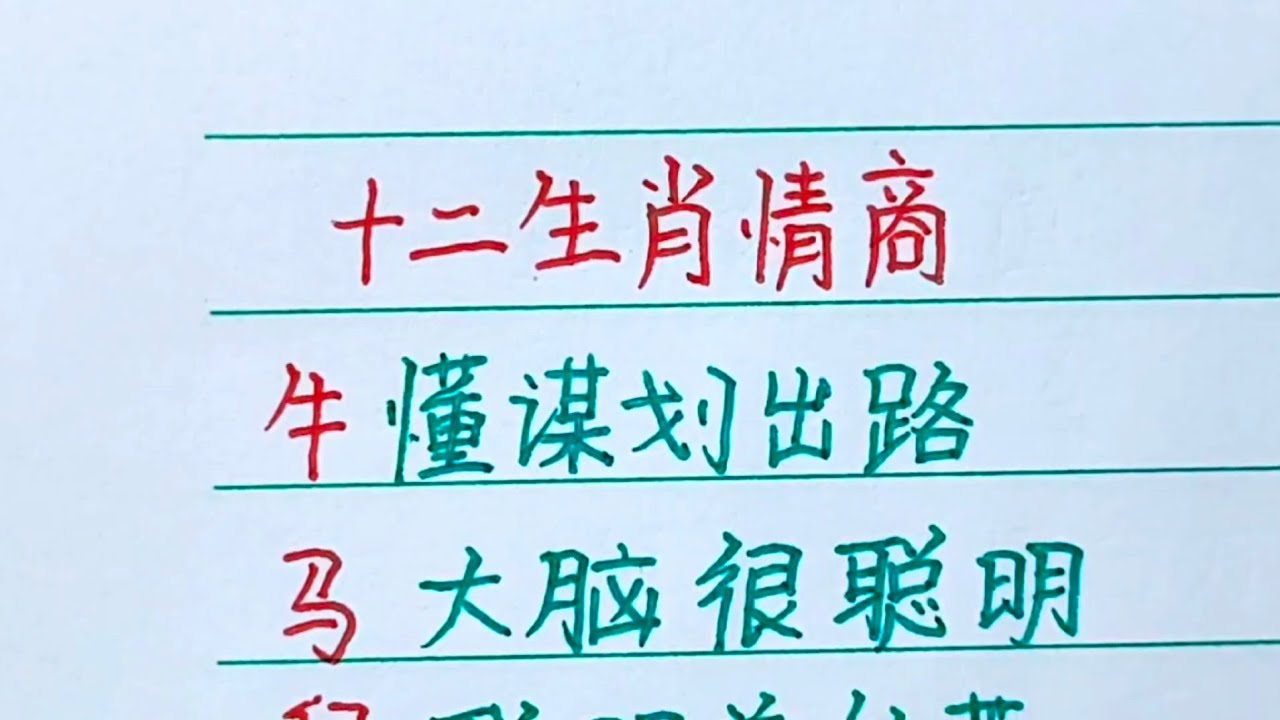 十二生肖情商
牛 懂谋划出路
马 大脑很聪明